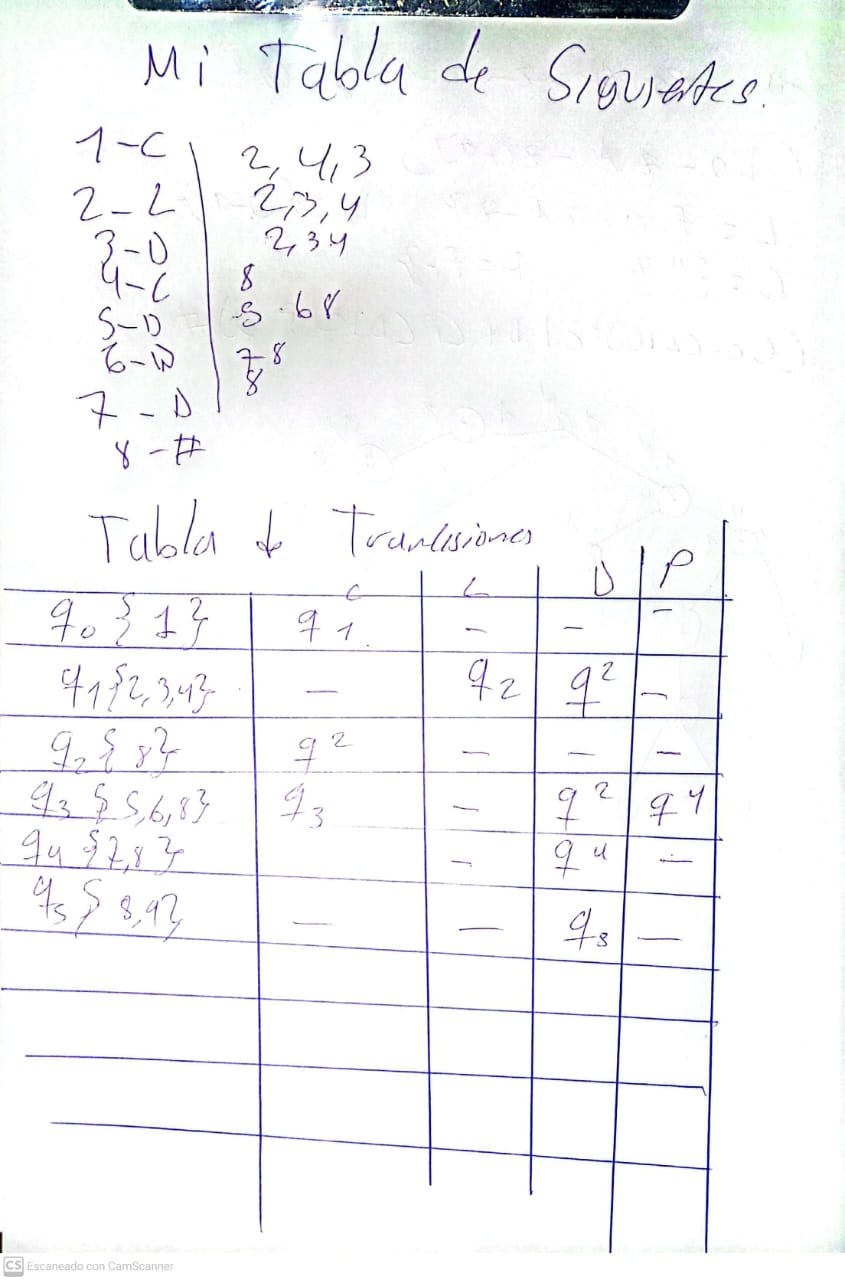 Mi Tabla de Siguientes.
1-C 2, 4, 3
2-L 2,3,4
3-D 2,34
4-C 8
5-D 5 68
6- 78
7-D 8
8-#
Tabla de Tranlisiones
C L D P
q0 {1} q1. - - -
q1 {2,3,4} - q2 q2 -
q2 {8} q2 - - -
q3 {5,6,8} q3 - q2 q4
q4 {7,8} - q4 -
q5 {8,9} - - q8 -
CS Escaneado con CamScanner